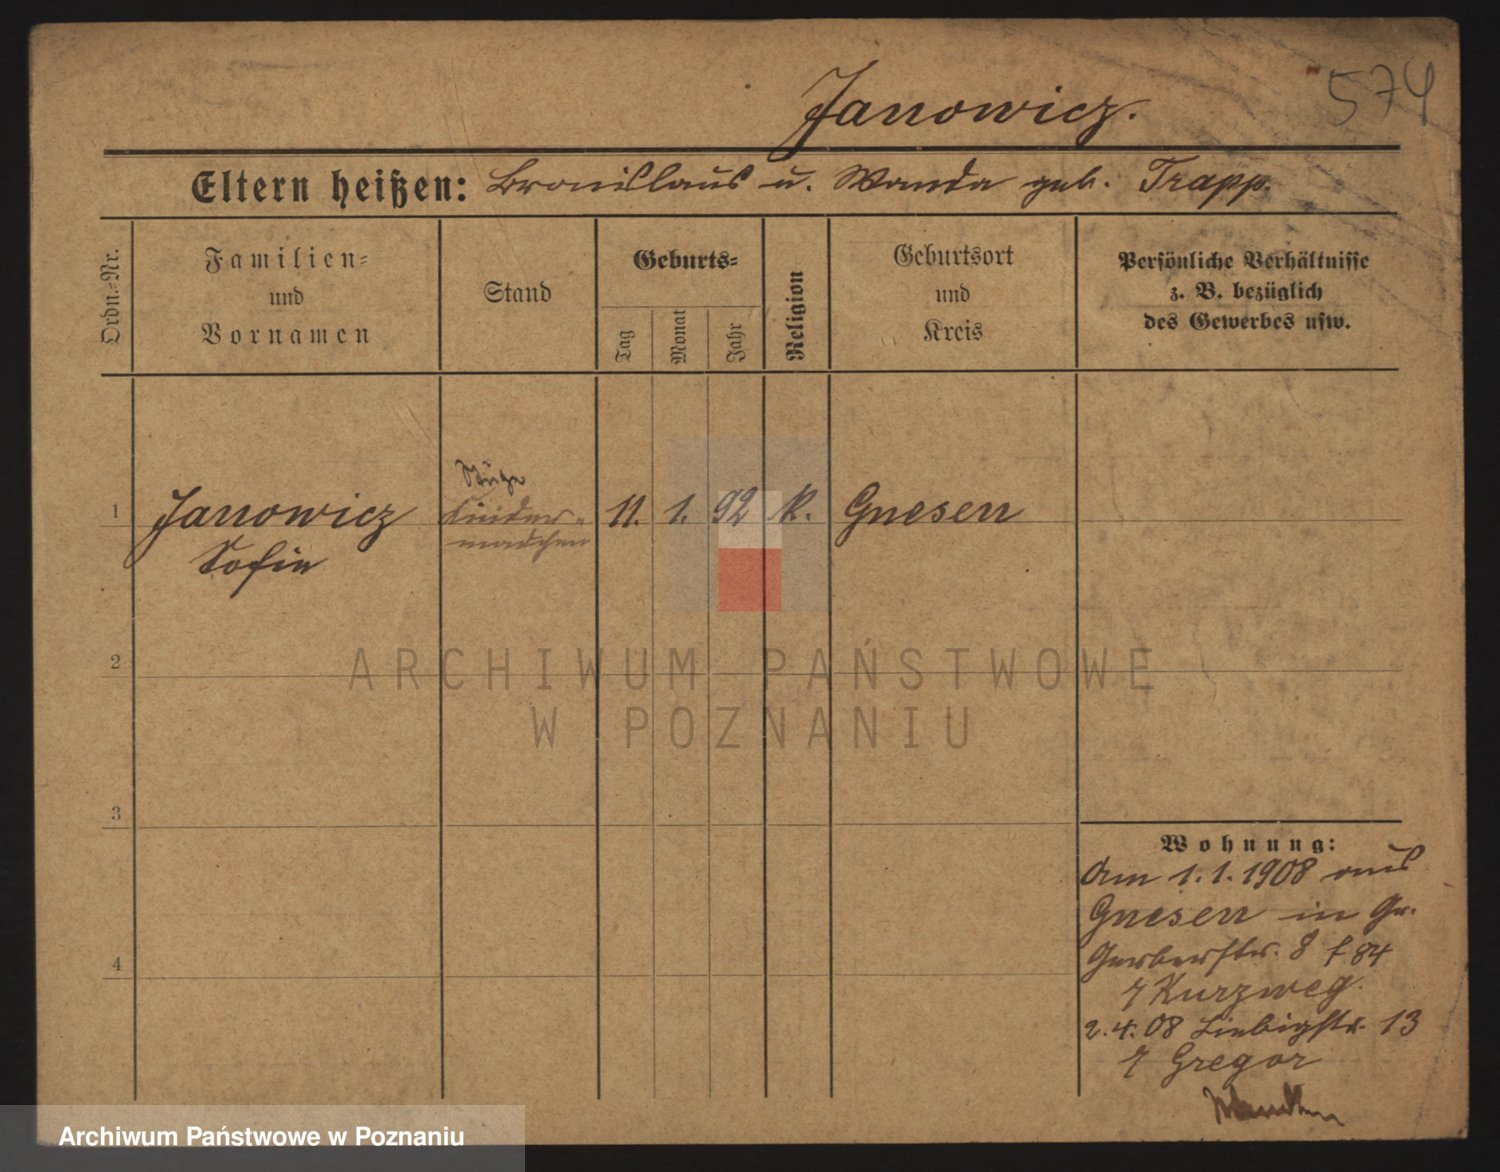 574
Janowicz.
Eltern heißen: Bronislaus u. Wanda geb. Trapp.
Ordn.-Nr.
Familien-
und
Vornamen
Stand
Geburts-
Tag
Monat
Jahr
Religion
Geburtsort
und
Kreis
Persönliche Verhältnisse
z. B. bezüglich
des Gewerbes usw.
Stütze
1 Janowicz Kinder- 11. 1. 92 K. Gnesen
mädchen
Sofie
2
ARCHIWUM PAŃSTWOWE
W POZNANIU
3
Wohnung:
Am 1.1.1908 aus
Gnesen in Gr.
Gerberstr. 8 f. 84
Kurzweg.
2.4.08 Liebigstr. 13
Gregor
4
Archiwum Państwowe w Poznaniu